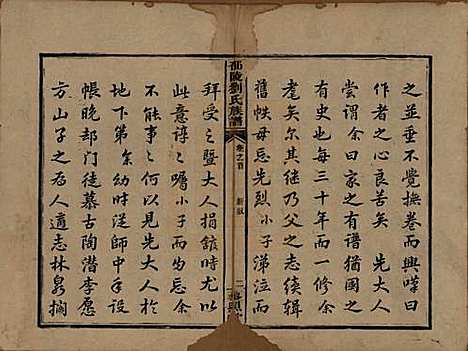 之並垂不覺撫卷而興嘆曰
作者之心良苦矣　先大人
嘗謂余曰家之有譜猶國之
有史也每三十年而一
耄矣尔其继乃父之志续辑
舊帙毋忘先烈小子涕泣而
邵陵劉氏族譜
卷之首
新叙
二
拜受之暨大人捐館時又以
此意諄之嘱小子而竊无以
不能事之何以見先大人於
地下第幼時従師中手設
帳晚却门徒慕古陶潜李愿
方山子之為人適志林泉擱